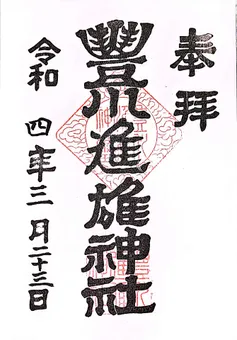 奉拝
豐川進雄神社
令和四年三月二十三日